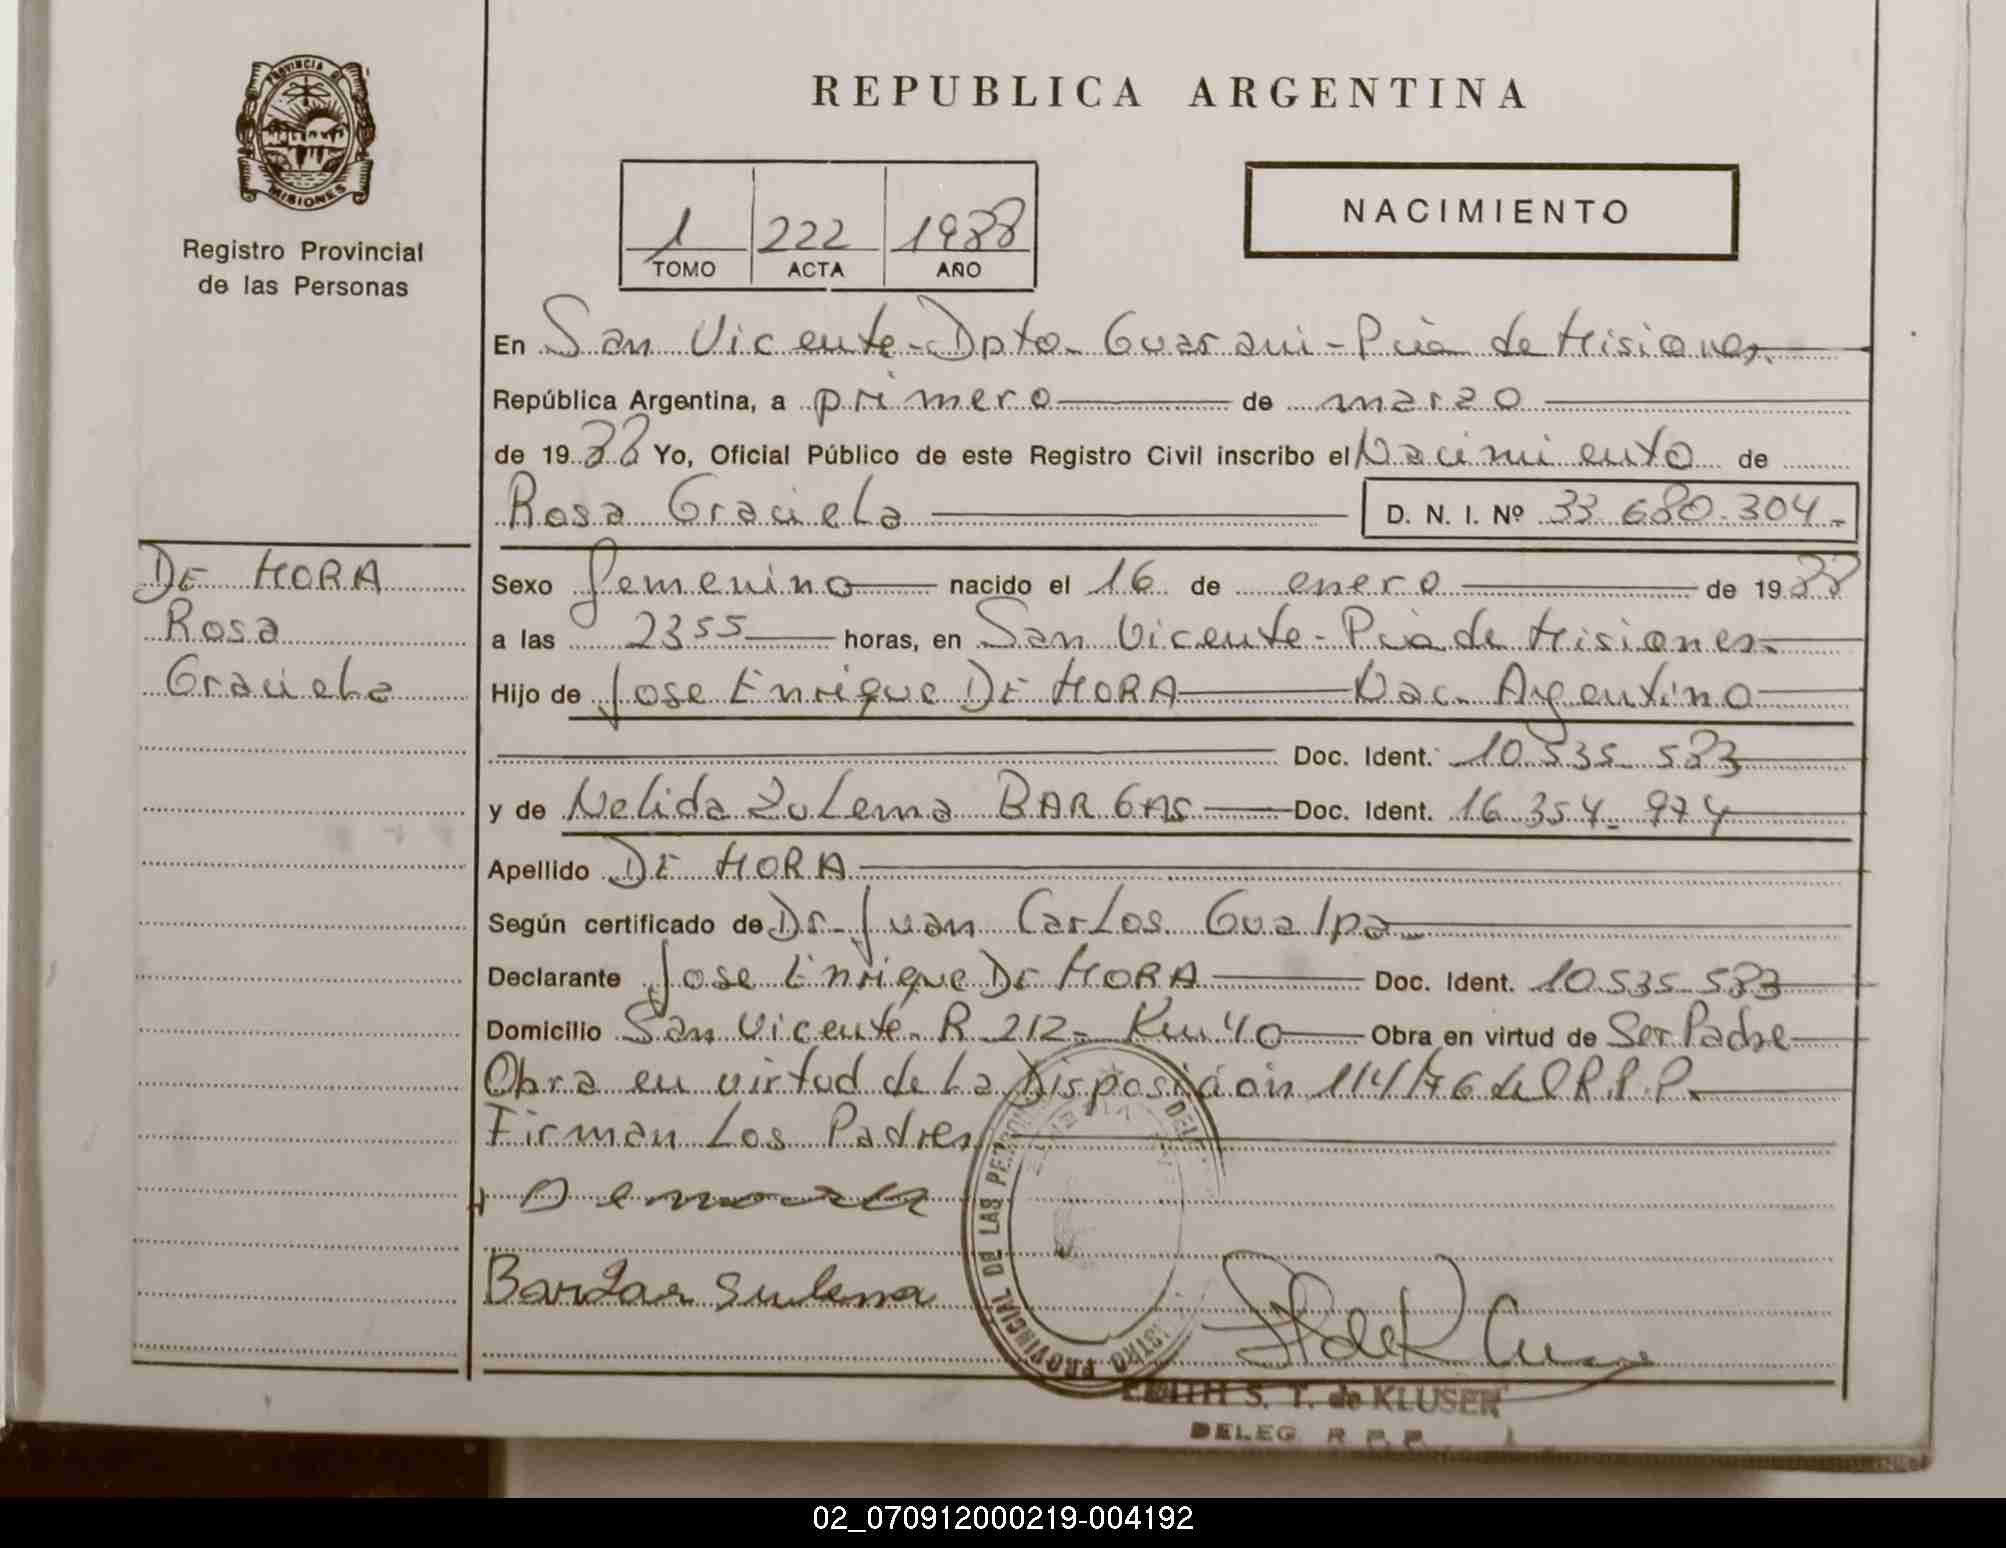 PROVINCIA DE
MISIONES
Registro Provincial
de las Personas
REPUBLICA ARGENTINA
1 222 1988
TOMO ACTA AÑO
NACIMIENTO
En San Vicente - Dpto - Guarani - Pcia de Misiones.
República Argentina, a primero de marzo
de 1988 Yo, Oficial Público de este Registro Civil inscribo el Nacimiento de
Rosa Graciela D. N. I. Nº 33.680.304-
DE MORA
Rosa
Graciela
Sexo Femenino nacido el 16 de enero de 1988
a las 23 55 horas, en San Vicente - Pcia de Misiones.
Hijo de Jose Enrique DE MORA Nac. Argentino
Doc. Ident. 10.535.583
y de Nelida Zulema BARGAS Doc. Ident. 16.354.974
Apellido DE MORA
Según certificado de Dr. Juan Carlos Gualpa
Declarante Jose Enrique DE MORA Doc. Ident. 10.535.583
Domicilio San Vicente - R 212 - Km 40 Obra en virtud de Ser Padre
Obra en virtud de la Disposición 114/76 del R.P.P.
Firman Los Padres
Demora
Bargas sulema
PROVINCIAL DE LAS PERSONAS
EDITH S. T. de KLUSER
DELEG R.P.P.
02_070912000219-004192